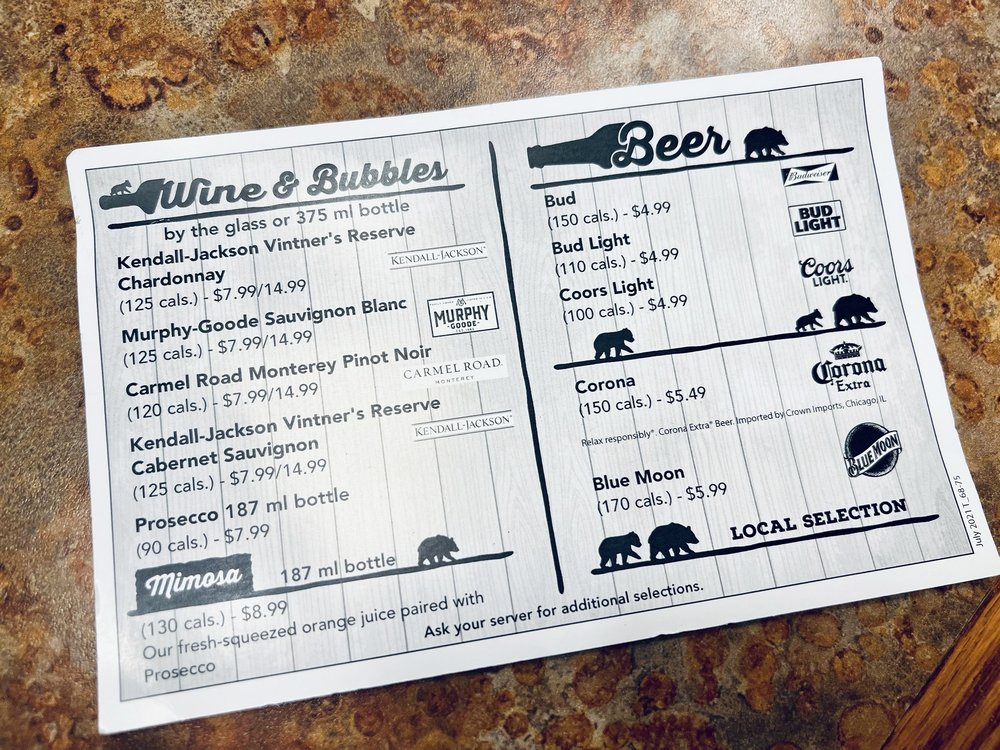 Wine & Bubbles
by the glass or 375 ml bottle
Kendall-Jackson Vintner's Reserve
Chardonnay
(125 cals.) - $7.99/14.99
KENDALL-JACKSON
Murphy-Goode Sauvignon Blanc
(125 cals.) - $7.99/14.99
MURPHY
GOODE
Carmel Road Monterey Pinot Noir
(120 cals.) - $7.99/14.99
CARMEL ROAD
MONTEREY
Kendall-Jackson Vintner's Reserve
Cabernet Sauvignon
(125 cals.) - $7.99/14.99
KENDALL-JACKSON
Prosecco 187 ml bottle
(90 cals.) - $7.99
Mimosa 187 ml bottle
(130 cals.) - $8.99
Our fresh-squeezed orange juice paired with
Prosecco
Beer
Bud
(150 cals.) - $4.99
Budweiser
Bud Light
(110 cals.) - $4.99
BUD
LIGHT
Coors Light
(100 cals.) - $4.99
Coors
LIGHT
Corona
(150 cals.) - $5.49
Corona
Extra
Relax responsibly®. Corona Extra® Beer. Imported by Crown Imports, Chicago, IL
Blue Moon
(170 cals.) - $5.99
BLUE MOON
LOCAL SELECTION
Ask your server for additional selections.
July 2021 T_68-75